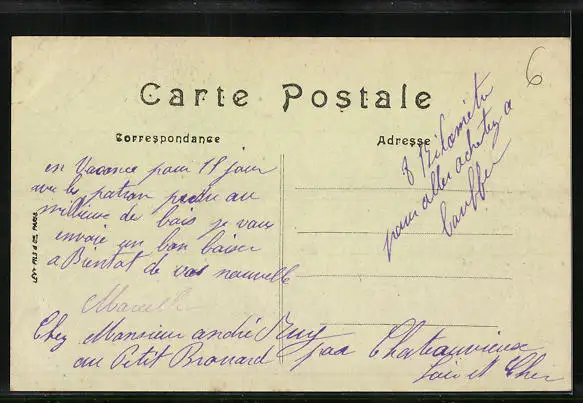 Carte Postale
Correspondance
Adresse
6
en Vacance pour 15 jour
avec les patron perdu au
millieue des bois je vous
envoie un bon baiser
a Bientot de vos nouvelle
Marcelle
Chez Monsieur andré
au Petit Brouard par Chateauvieux
Loir et Cher
8 Kilomètre
pour aller acheter a
LEVY FILS & Cie PARIS